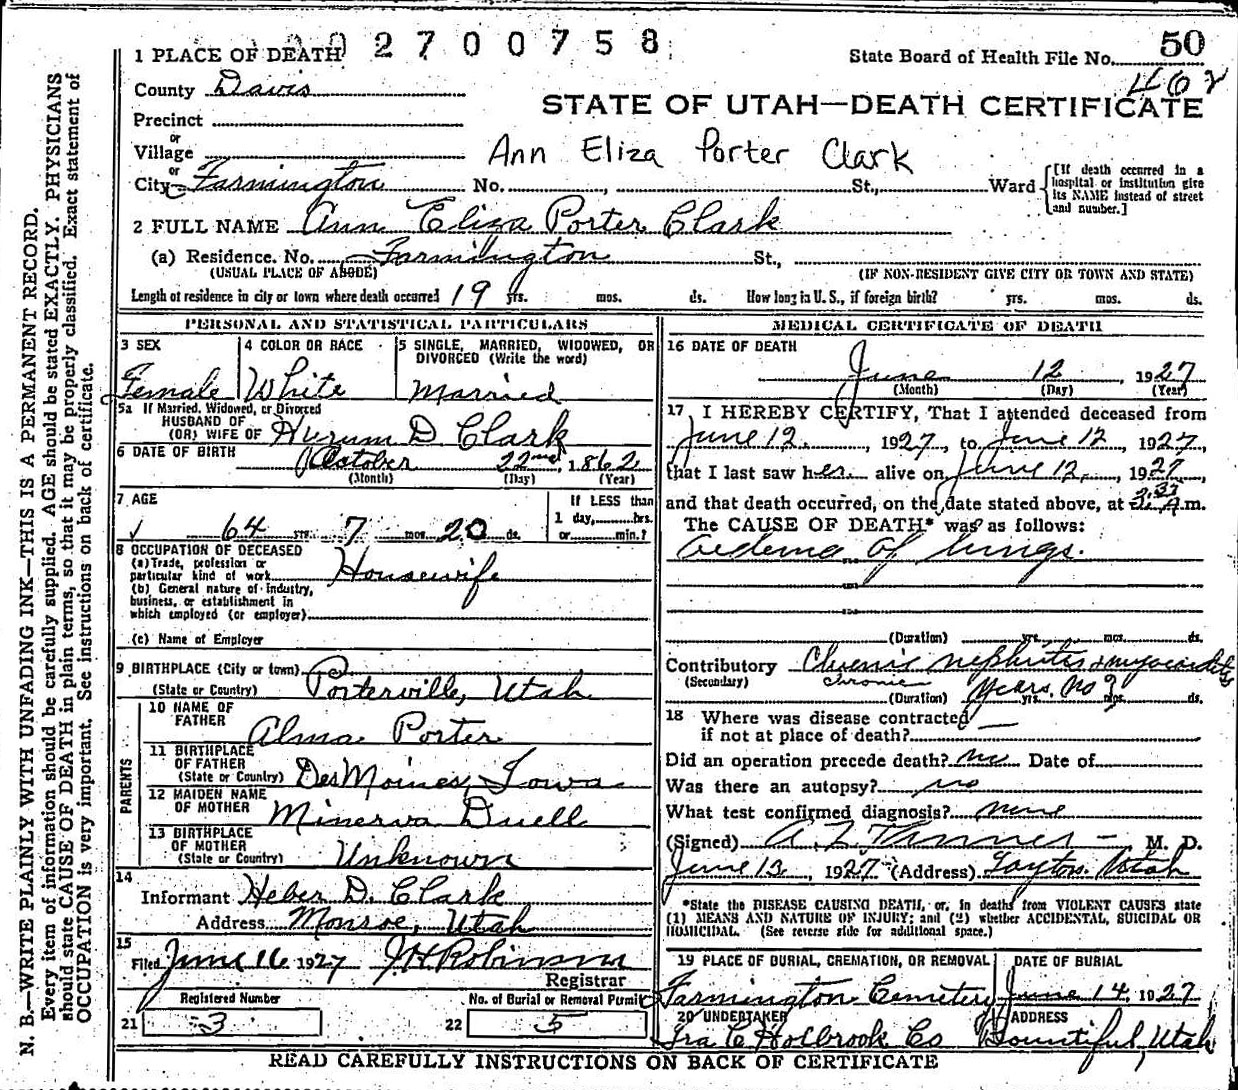 02700758
1 PLACE OF DEATH
State Board of Health File No. 50
402
County Davis
STATE OF UTAH—DEATH CERTIFICATE
Precinct
or
Village
Ann Eliza Porter Clark
or
City Farmington No. , St., Ward
[If death occurred in a hospital or institution give its NAME instead of street and number.]
2 FULL NAME Ann Eliza Porter Clark
(a) Residence. No. Farmington St.,
(USUAL PLACE OF ABODE) (IF NON-RESIDENT GIVE CITY OR TOWN AND STATE)
Length of residence in city or town where death occurred 19 yrs. mos. ds. How long in U. S., if foreign birth? yrs. mos. ds.
PERSONAL AND STATISTICAL PARTICULARS
3 SEX 4 COLOR OR RACE 5 SINGLE, MARRIED, WIDOWED, OR DIVORCED (Write the word)
Female White Married
5a If Married, Widowed, or Divorced
HUSBAND OF
(OR) WIFE OF Hyrum D Clark
6 DATE OF BIRTH October 22nd, 1862
(Month) (Day) (Year)
7 AGE If LESS than
1 day, hrs.
64 yrs. 7 mos. 20 ds. or min.?
8 OCCUPATION OF DECEASED
(a) Trade, profession or
particular kind of work Housewife
(b) General nature of industry,
business, or establishment in
which employed (or employer)
(c) Name of Employer
9 BIRTHPLACE (City or town)
(State or Country) Porterville, Utah
PARENTS
10 NAME OF
FATHER Alma Porter
11 BIRTHPLACE
OF FATHER
(State or Country) Des Moines, Iowa
12 MAIDEN NAME
OF MOTHER Minerva Duell
13 BIRTHPLACE
OF MOTHER
(State or Country) Unknown
14
Informant Heber D. Clark
Address Monroe, Utah
15
Filed June 16 1927 J H Robinson
Registrar
Registered Number No. of Burial or Removal Permit
21 3 22 5
MEDICAL CERTIFICATE OF DEATH
16 DATE OF DEATH
June 12, 1927
(Month) (Day) (Year)
17 I HEREBY CERTIFY, That I attended deceased from
June 12, 1927, to June 12, 1927,
that I last saw her alive on June 12, 1927,
and that death occurred, on the date stated above, at A.m.
The CAUSE OF DEATH* was as follows:
Oedema of lungs.
(Duration) yrs. mos. ds.
Contributory Chronic nephritis & myocarditis
(Secondary) chronic
(Duration) years. no? yrs. mos. ds.
18 Where was disease contracted
if not at place of death? —
Did an operation precede death? no Date of
Was there an autopsy? no
What test confirmed diagnosis? none
(Signed) A. Z. Tanner — M. D.
June 13, 1927 (Address) Layton Utah
*State the DISEASE CAUSING DEATH, or, in deaths from VIOLENT CAUSES state
(1) MEANS AND NATURE OF INJURY; and (2) whether ACCIDENTAL, SUICIDAL OR
HOMICIDAL. (See reverse side for additional space.)
19 PLACE OF BURIAL, CREMATION, OR REMOVAL DATE OF BURIAL
Farmington Cemetery June 14, 1927
20 UNDERTAKER ADDRESS
Ira C Holbrook Co Bountiful, Utah
READ CAREFULLY INSTRUCTIONS ON BACK OF CERTIFICATE
N. B.—WRITE PLAINLY WITH UNFADING INK—THIS IS A PERMANENT RECORD.
Every item of information should be carefully supplied. AGE should be stated EXACTLY. PHYSICIANS
should state CAUSE OF DEATH in plain terms, so that it may be properly classified. Exact statement of
OCCUPATION is very important. See instructions on back of certificate.